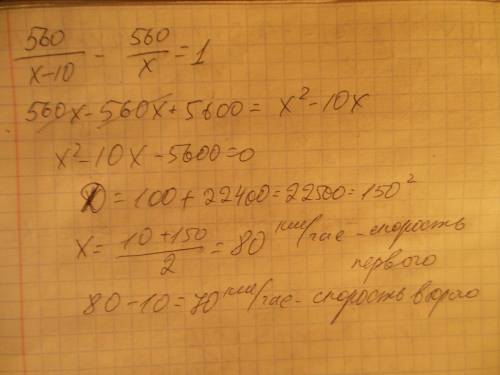 560/(x-10) - 560/x = 1
560x-560x+5600= x²-10x
x²-10x-5600=0
D=100+22400=22500=150²
x= (10+150)/2 = 80 км/час - скорость
первого
80-10=70 км/час - скорость второго